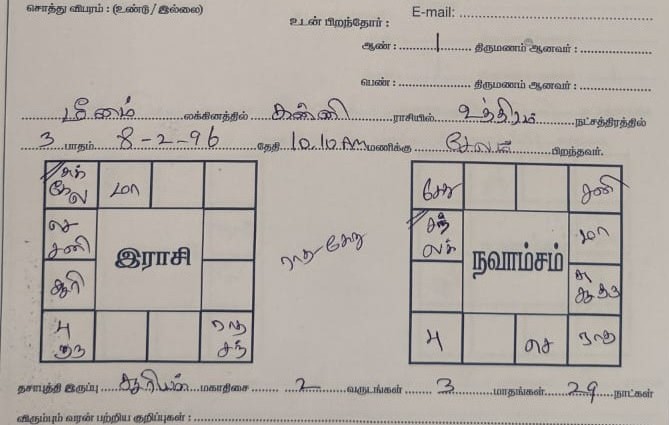 சொத்து விபரம் : (உண்டு / இல்லை)
E-mail:
உடன் பிறந்தோர் :
ஆண் : 1 திருமணம் ஆனவர் :
பெண் : திருமணம் ஆனவர் :
மீனம் லக்கினத்தில் கன்னி ராசியில் உத்திரம் நட்சத்திரத்தில்
3 பாதம் 8-2-96 தேதி 10.10 AM மணிக்கு சேலம் பிறந்தவர்.
மா
கேது சனி
செ சனி
சந் லக்
மா
இராசி
ராகு-கேது
நவாம்சம்
சூரி
பு குரு
ராகு சந்
பு
செ
ராகு
தசாபுத்தி இருப்பு சூரியன் மகாதிசை 2 வருடங்கள் 3 மாதங்கள் 29 நாட்கள்
விரும்பும் வரன் பற்றிய குறிப்புகள் :